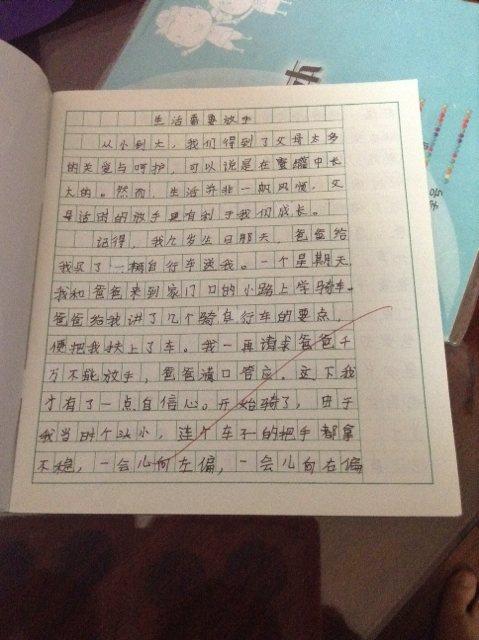 生活需要放手
从小到大，我们得到了父母太多
的关爱与呵护，可以说是在蜜罐中长
大的。然而，生活并非一帆风顺，父
母适时的放手更有利于我们成长。
记得，我九岁生日那天，爸爸给
我买了一辆自行车送我。一个星期天，
我和爸爸来到家门口的小路上学骑车。
爸爸给我讲了几个骑自行车的要点，
便把我扶上了车。我一再请求爸爸千
万不能放手，爸爸满口管应。这下我
才有了一点自信心。开始骑了，由于
我当时个头小，连个车子的把手都拿
不稳，一会儿向左偏，一会儿向右偏
本